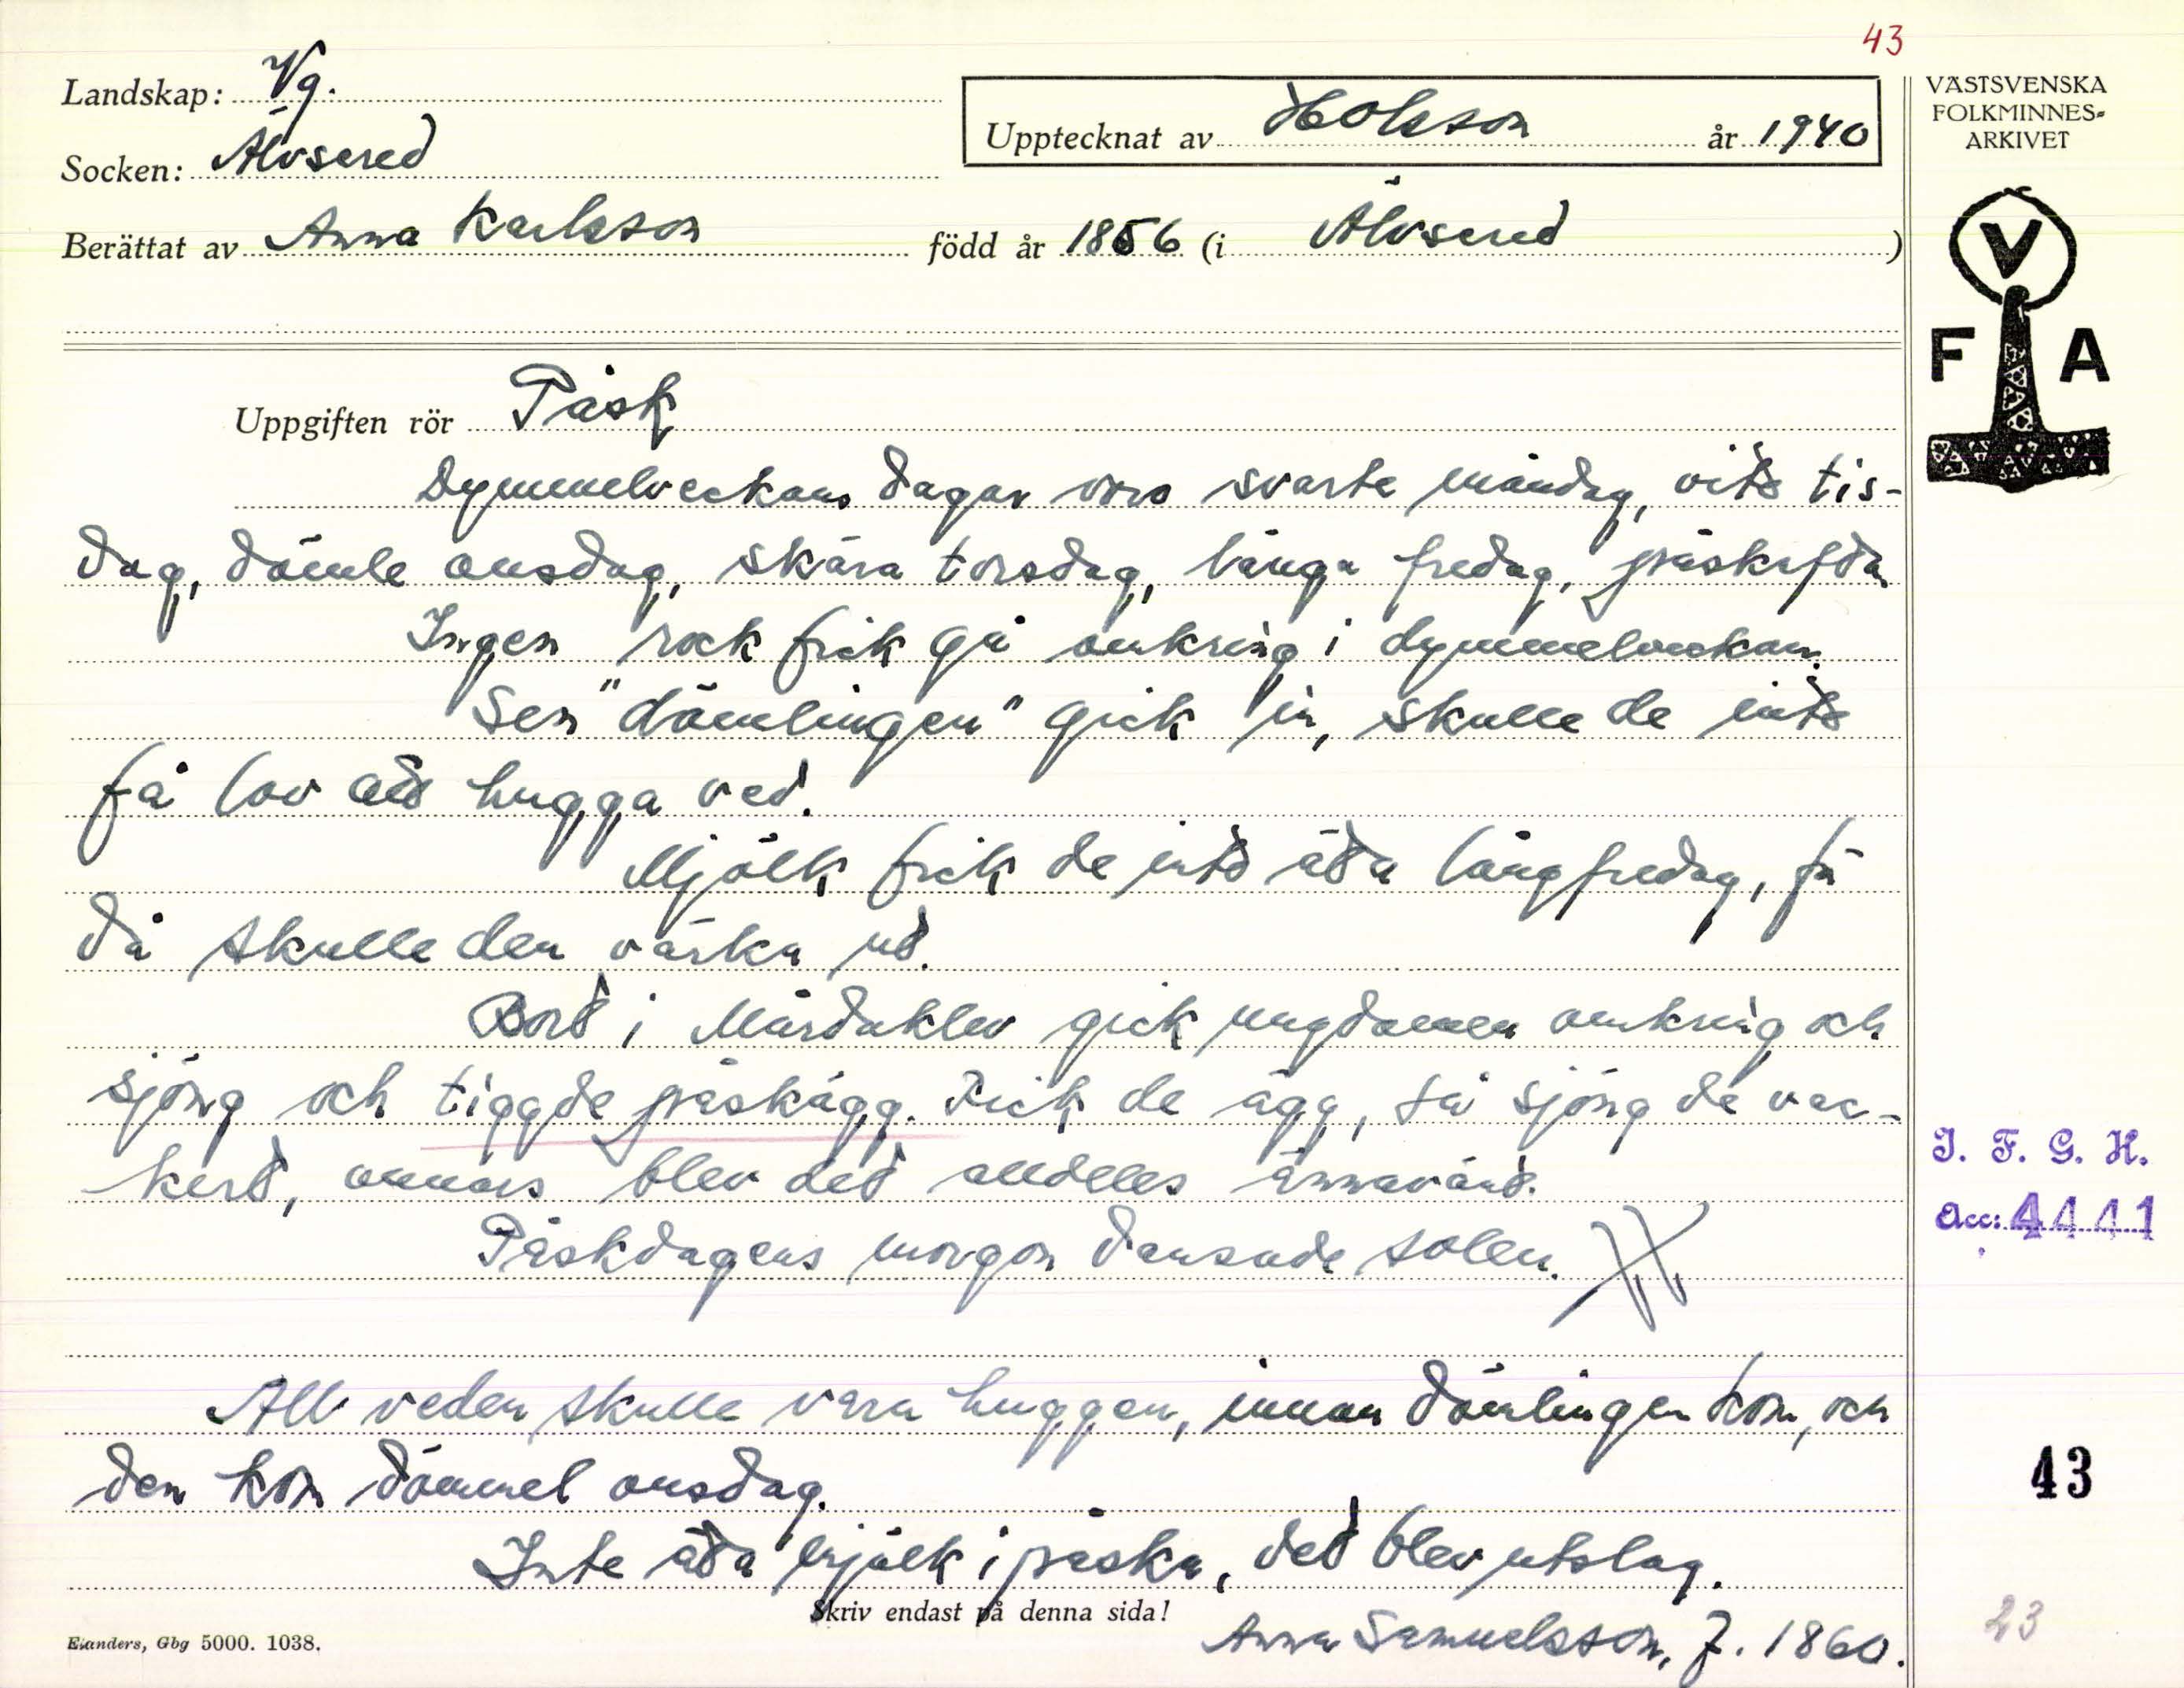 43
Landskap: Vg.
Socken: Älvsered
Upptecknat av HOlsson år 1940
Berättat av Anna Karlsson född år 1856 (i Älvsered)
VÄSTSVENSKA
FOLKMINNES-
ARKIVET
V
F A
Uppgiften rör Påsk
Dymmelveckans dagar voro svarte måndag, vite tis-
dag, dömle onsdag, skära torsdag, långa fredag, påskafta
Ingen rock fick gå omkring i dymmelveckan.
Sen "dömlingen" gick in, skulle de inte
få lov att hugga ved.
Mjölk fick de inte äta långfredag, för
då skulle den värka ut.
Bort i Mårdaklev gick ungdomen omkring och
sjöng och tiggde påskägg. Fick de ägg, så sjöng de vac-
kert, annars blev det alldeles ännavänt.
Påskdagens morgon dansade solen.
All veden skulle vara huggen, innan dömlingen kom, och
den kom dömmel onsdag.
Inte äta mjölk i påska, det blev utslag.
Skriv endast på denna sida!
Anna Samuelsson, f. 1860.
Elanders, Gbg 5000. 1038.
I. F. G. H.
Acc: 4441
43
23